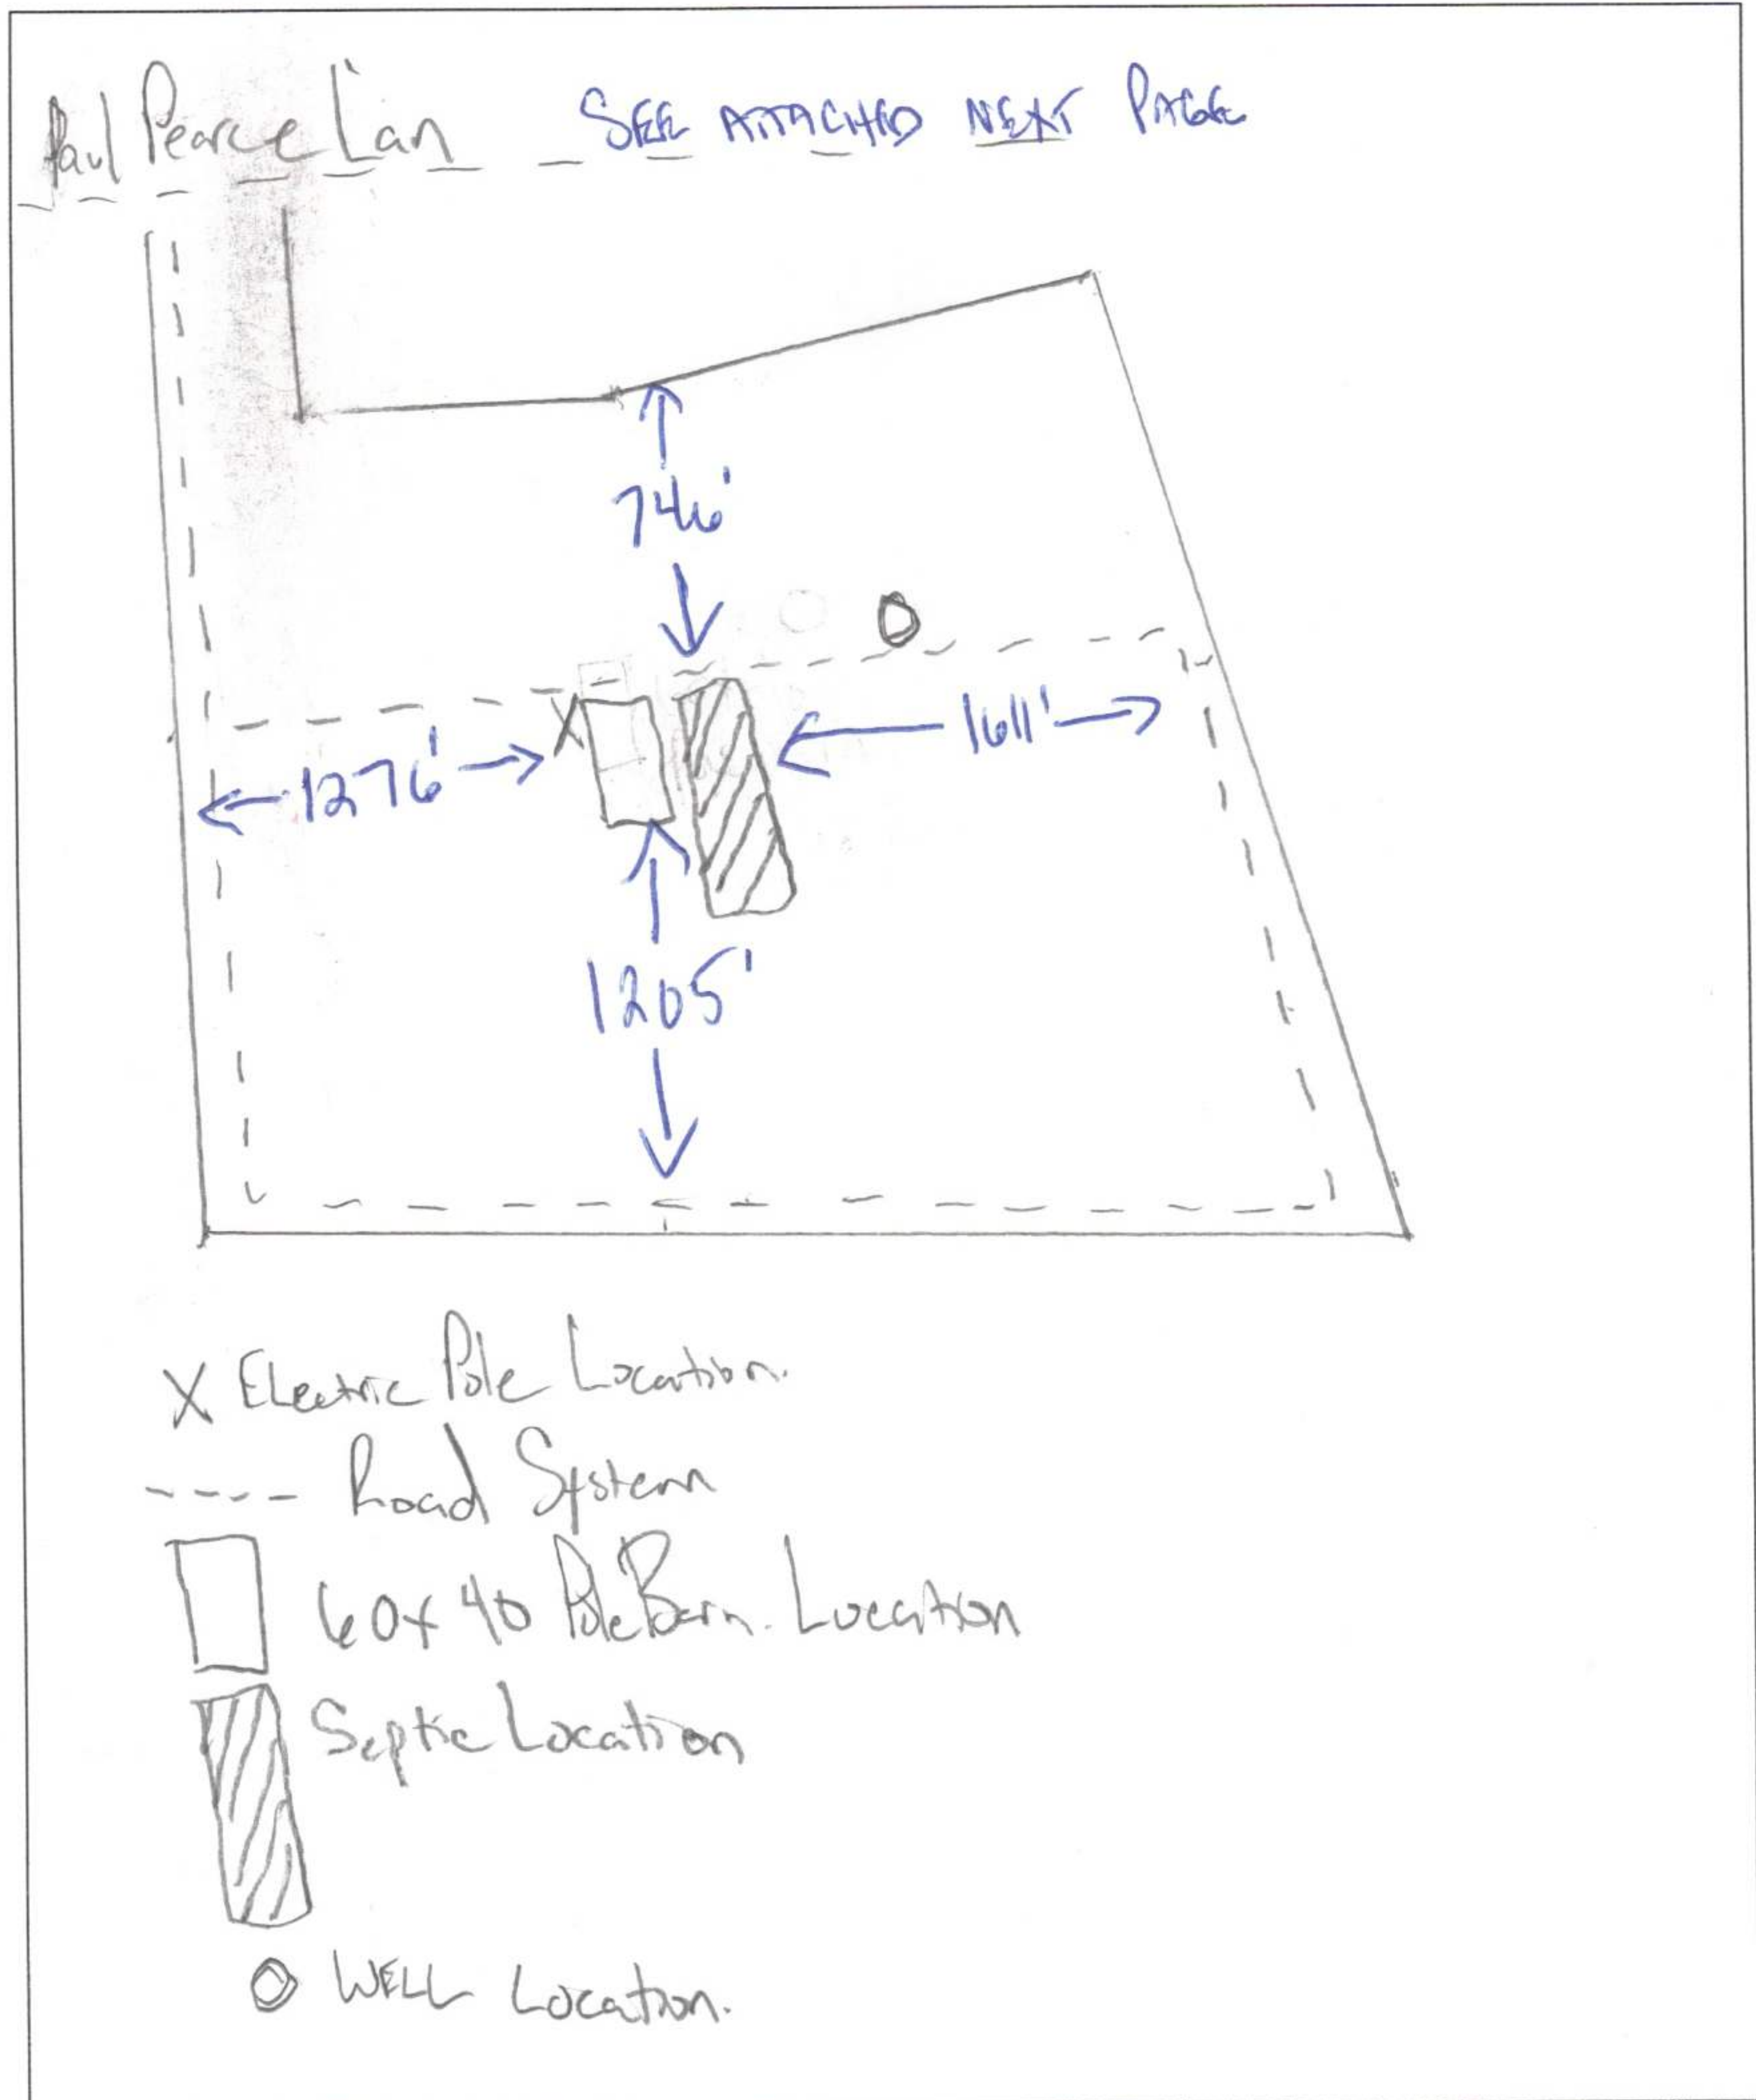 Paul Pearce Lan SEE ATTACHED NEXT PAGE
746'
1611'
X
1276'
1205'
X Electric Pole Location.
---- Road System
60x40 Pole Barn. Location
Septic Location
WELL Location.